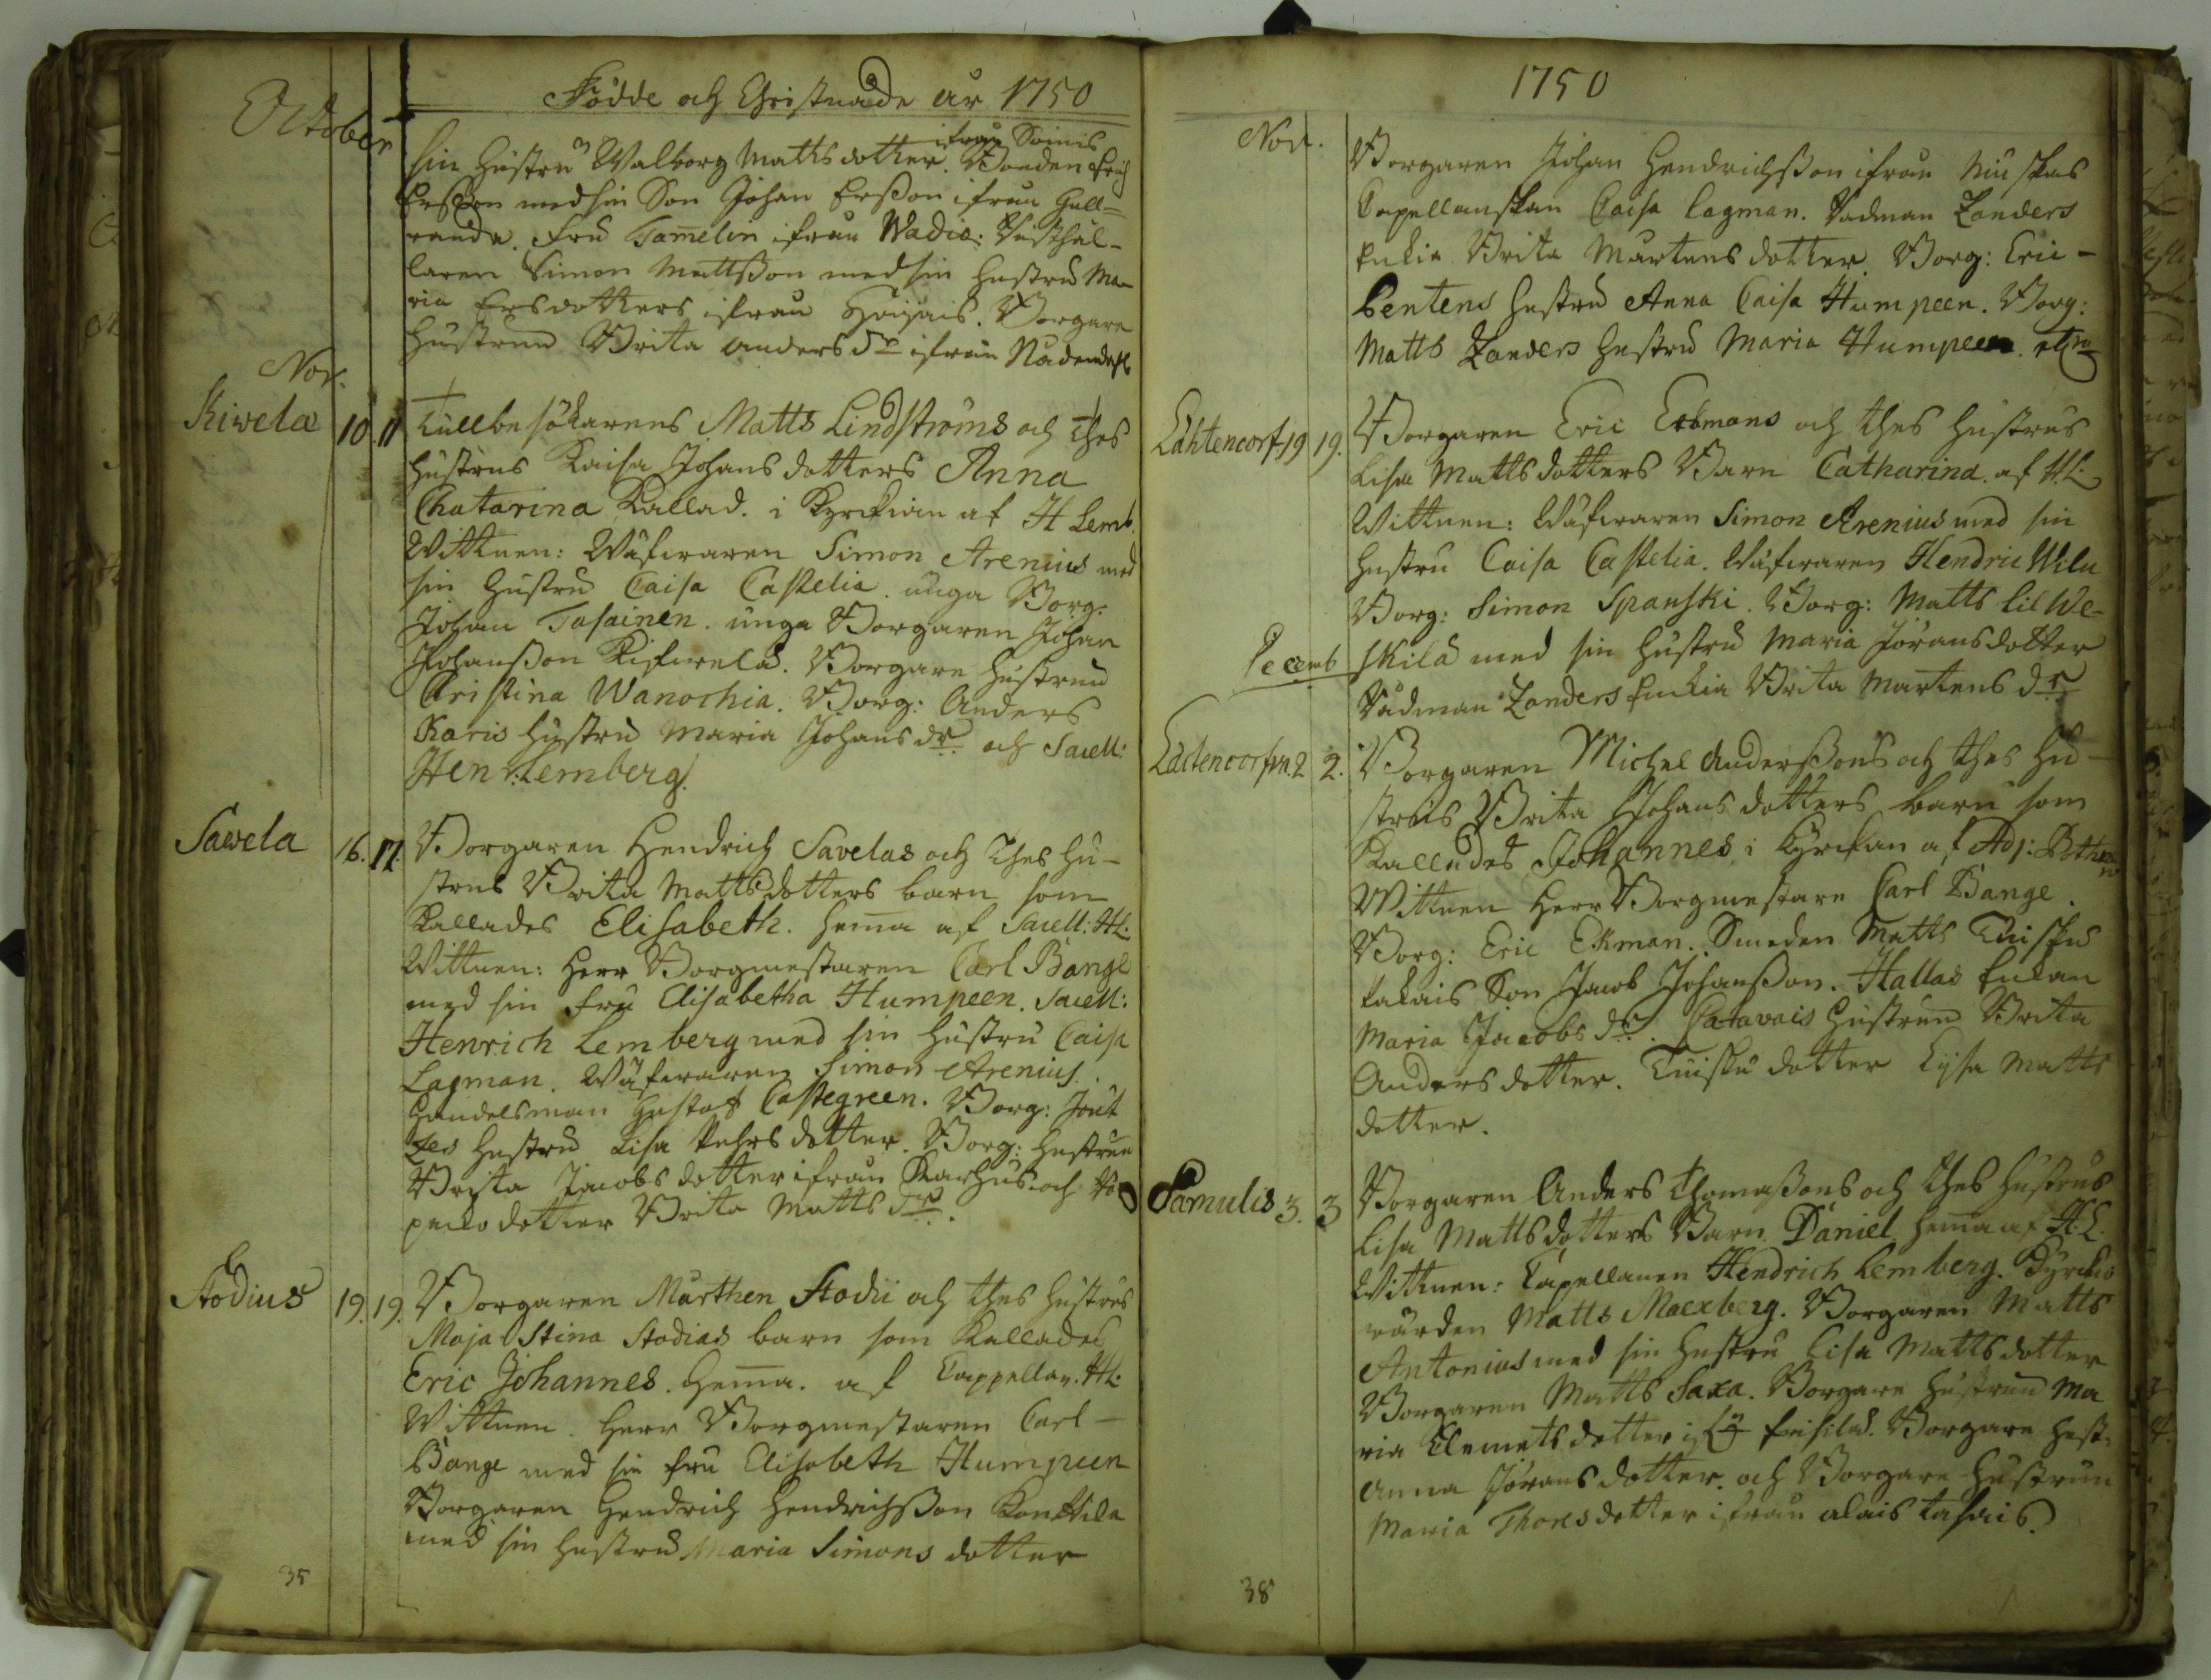 Födde och Christnade år 1750
October
ifrån Soinis
sin hustru Walborg Mattsdotter. Bonden Erich
Ersson med sin Son Johan Ersson ifrån Gall-
randa. Fru Tamelin ifrån Wadia:
laren Simon Mattsson med sin hustru Ma-
ria Ersdotters ifrån Haijais. Borgare
hustrun Brita Anders Dr ifrån Nådendahl
Nov.
Kiwela 10 11 Tullbesökarens Matts Lindströms och thes
hustrus Kaisa Johans dotters Anna
Chatarina Kallad. i Kyrckian af H Lemb.
Wittnen: Wäfwaren Simon Arenius med
sin hustru Caisa Castelia. unga Borg:
Johan Tasainen. unga Borgaren Johan
Johansson Kisswela. Borgare hustrun
Christina Wanochia. Borg: Anders
Karis hustru Maria Johans dr och Sacell:
Henr: Lemberg.
Sawela 16. 17. Borgaren Hendrich Savelas och thes hu-
strus Brita Mattsdotters barn som
Kallades Elisabeth. hema af Sacell: HL.
Wittnen: Herr Borgmestaren Carl Bange
med sin fru Elisabetha Humpeen. Sacell:
Henrich Lemberg med sin hustru Caisa
Lagman. Wäfwaren Simon Arenius.
Handelsman Gustaf Castegreen. Borg: Jout
zes hustru Lisa Pehrs dotter. Borg: hustrun
Brita Jacobs dotter ifrån Karhus och
dotter Brita Matts dr.
Stodius 19. 19. Borgaren Mårthen Stodii och thes hustrus
Maja Stina Stodias barn som Kallades
Eric Johannes. hema. af Cappellan. HL.
Wittnen. Herr Borgmestaren Carl
Bange med sin fru Elisabeth Humpeen
Borgaren Hendrich Hendrichsson Konttila
med sin hustru Maria Simons dotter
35
1750
Nov.
Borgaren Johan Hendrichsson ifrån Niuskas
Capellanskan Caisa Lagman. Rådman Zanders
Enkia Brita Martens dotter. Borg: Eric
Bentens hustru Anna Caisa Humpeen. Borg:
Matts Zanders hustru Maria Humpeen.
Lähtencorf. 19 19. Borgaren Eric Ekmans och thes hustrus
Lisa Mattsdotters Barn Catharina. af H.L.
Wittnen: Wäfwaren Simon Arenius med sin
hustru Caisa Castelia. Wäfwaren Hendric Wilu
Borg: Simon Spanski. Borg: Matts Lil We-
Decemb skila med sin hustru Maria Jöransdotter
Rådman Zanders Enckia Brita Martens dr
Ladtencorfvn. 2 2. Borgaren Michel Anderssons och thes hu-
strus Brita Johans dotters barn som
Kallades Johannes, i Kyrckan af Adj: Bothen
Wittnen Herr Borgmestare Carl Bange.
Borg: Eric Ekman. Smeden Matts Tuisku
Son Jacob Johansson. Hallas Enkan
Maria Jacobs dr. Catavais hustrun Brita
Anders dotter. Tuisku dotter Lisa Matts
dotter.
Samulis 3. 3 Borgaren Anders Thomassons och thes hustrus
Lisa Mattsdotters Barn Daniel hema af H.L.
Wittnen: Capellanen Hendrich Lemberg. Kyrckio
wärden Matts Maexberg. Borgaren Matts
Antonius med sin hustru Lisa Mattsdotter
Borgaren Matts Saxa. Borgare hustrun Ma
ria Clemets dotter Borgare hust:
Anna Jörans dotter. och Borgare hustrun
Maria Thores dotter ifrån alais tasais.
38